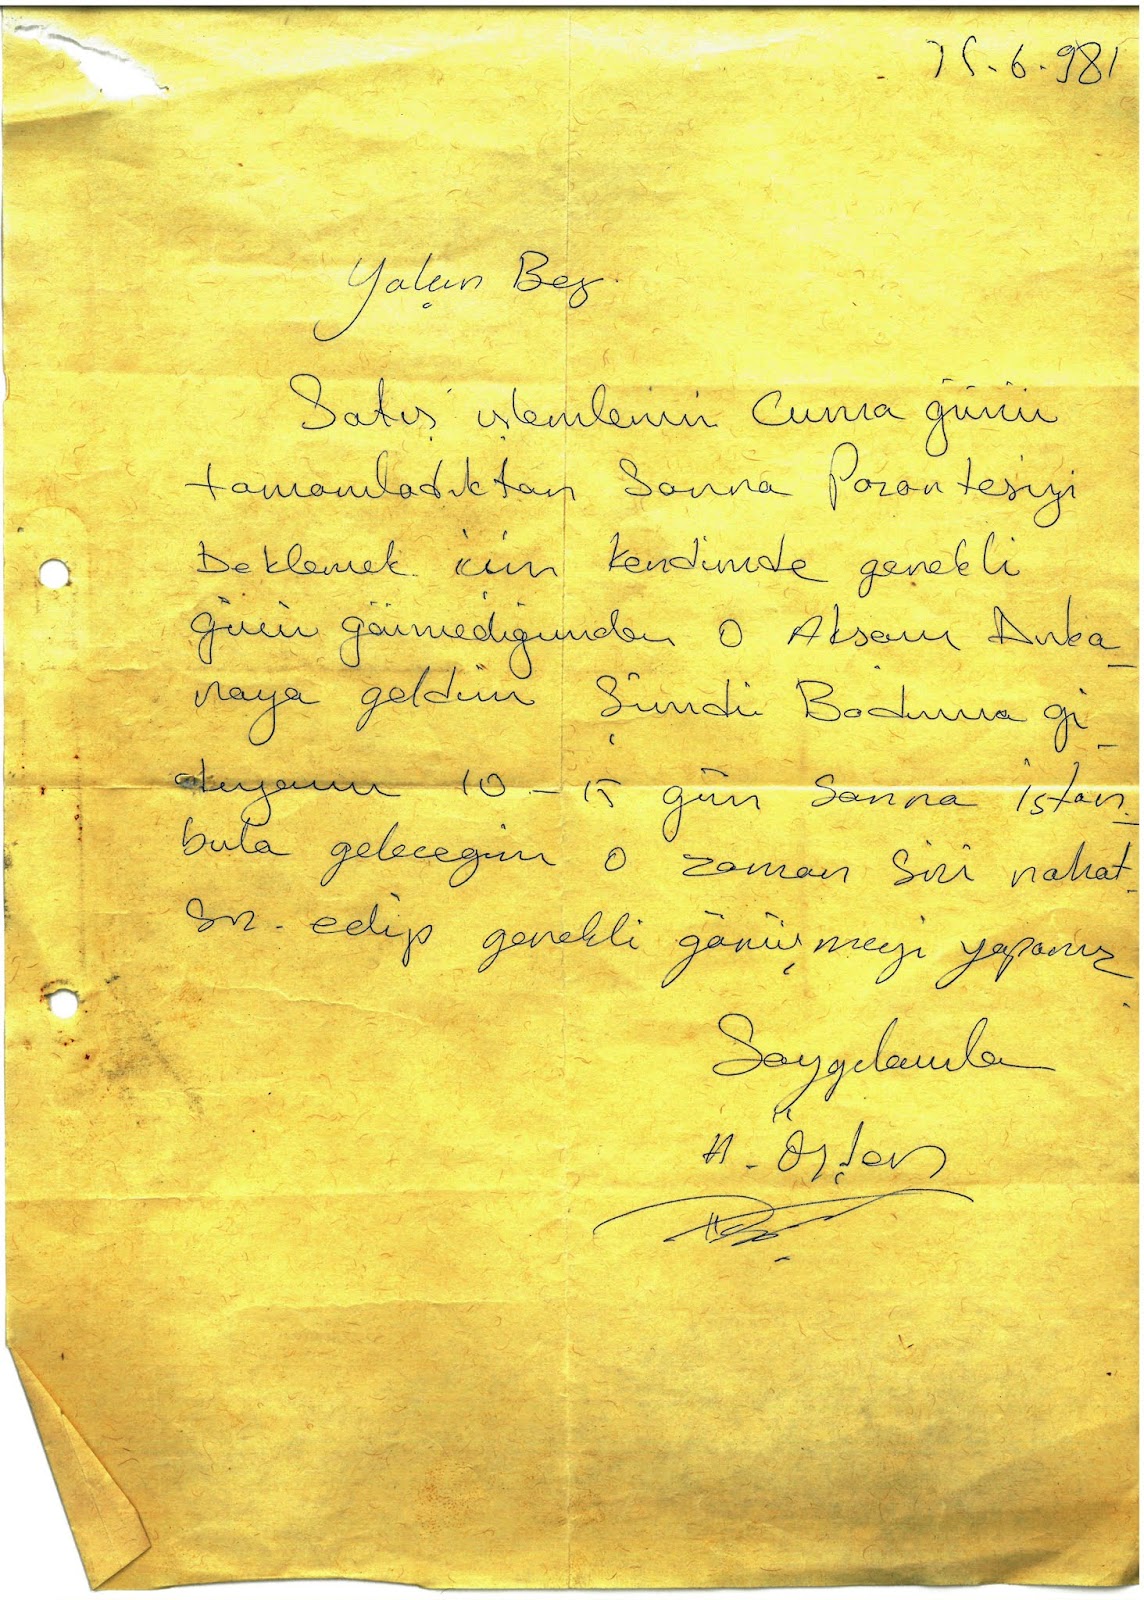 15.6.981
Yalçın Bey
Satış işlemlerini Cuma günü
tamamladıktan Sonra Pazartesiyi
Beklemek için kendimde gerekli
gücü görmediğimden O Akşam Anka-
raya geldim Şimdi Bodruma gi-
diyorum 10 - 15 gün Sonra İstan-
bula geleceğim O zaman Sizi rahat-
sız edip gerekli görüşmeyi yaparız
Saygılarımla